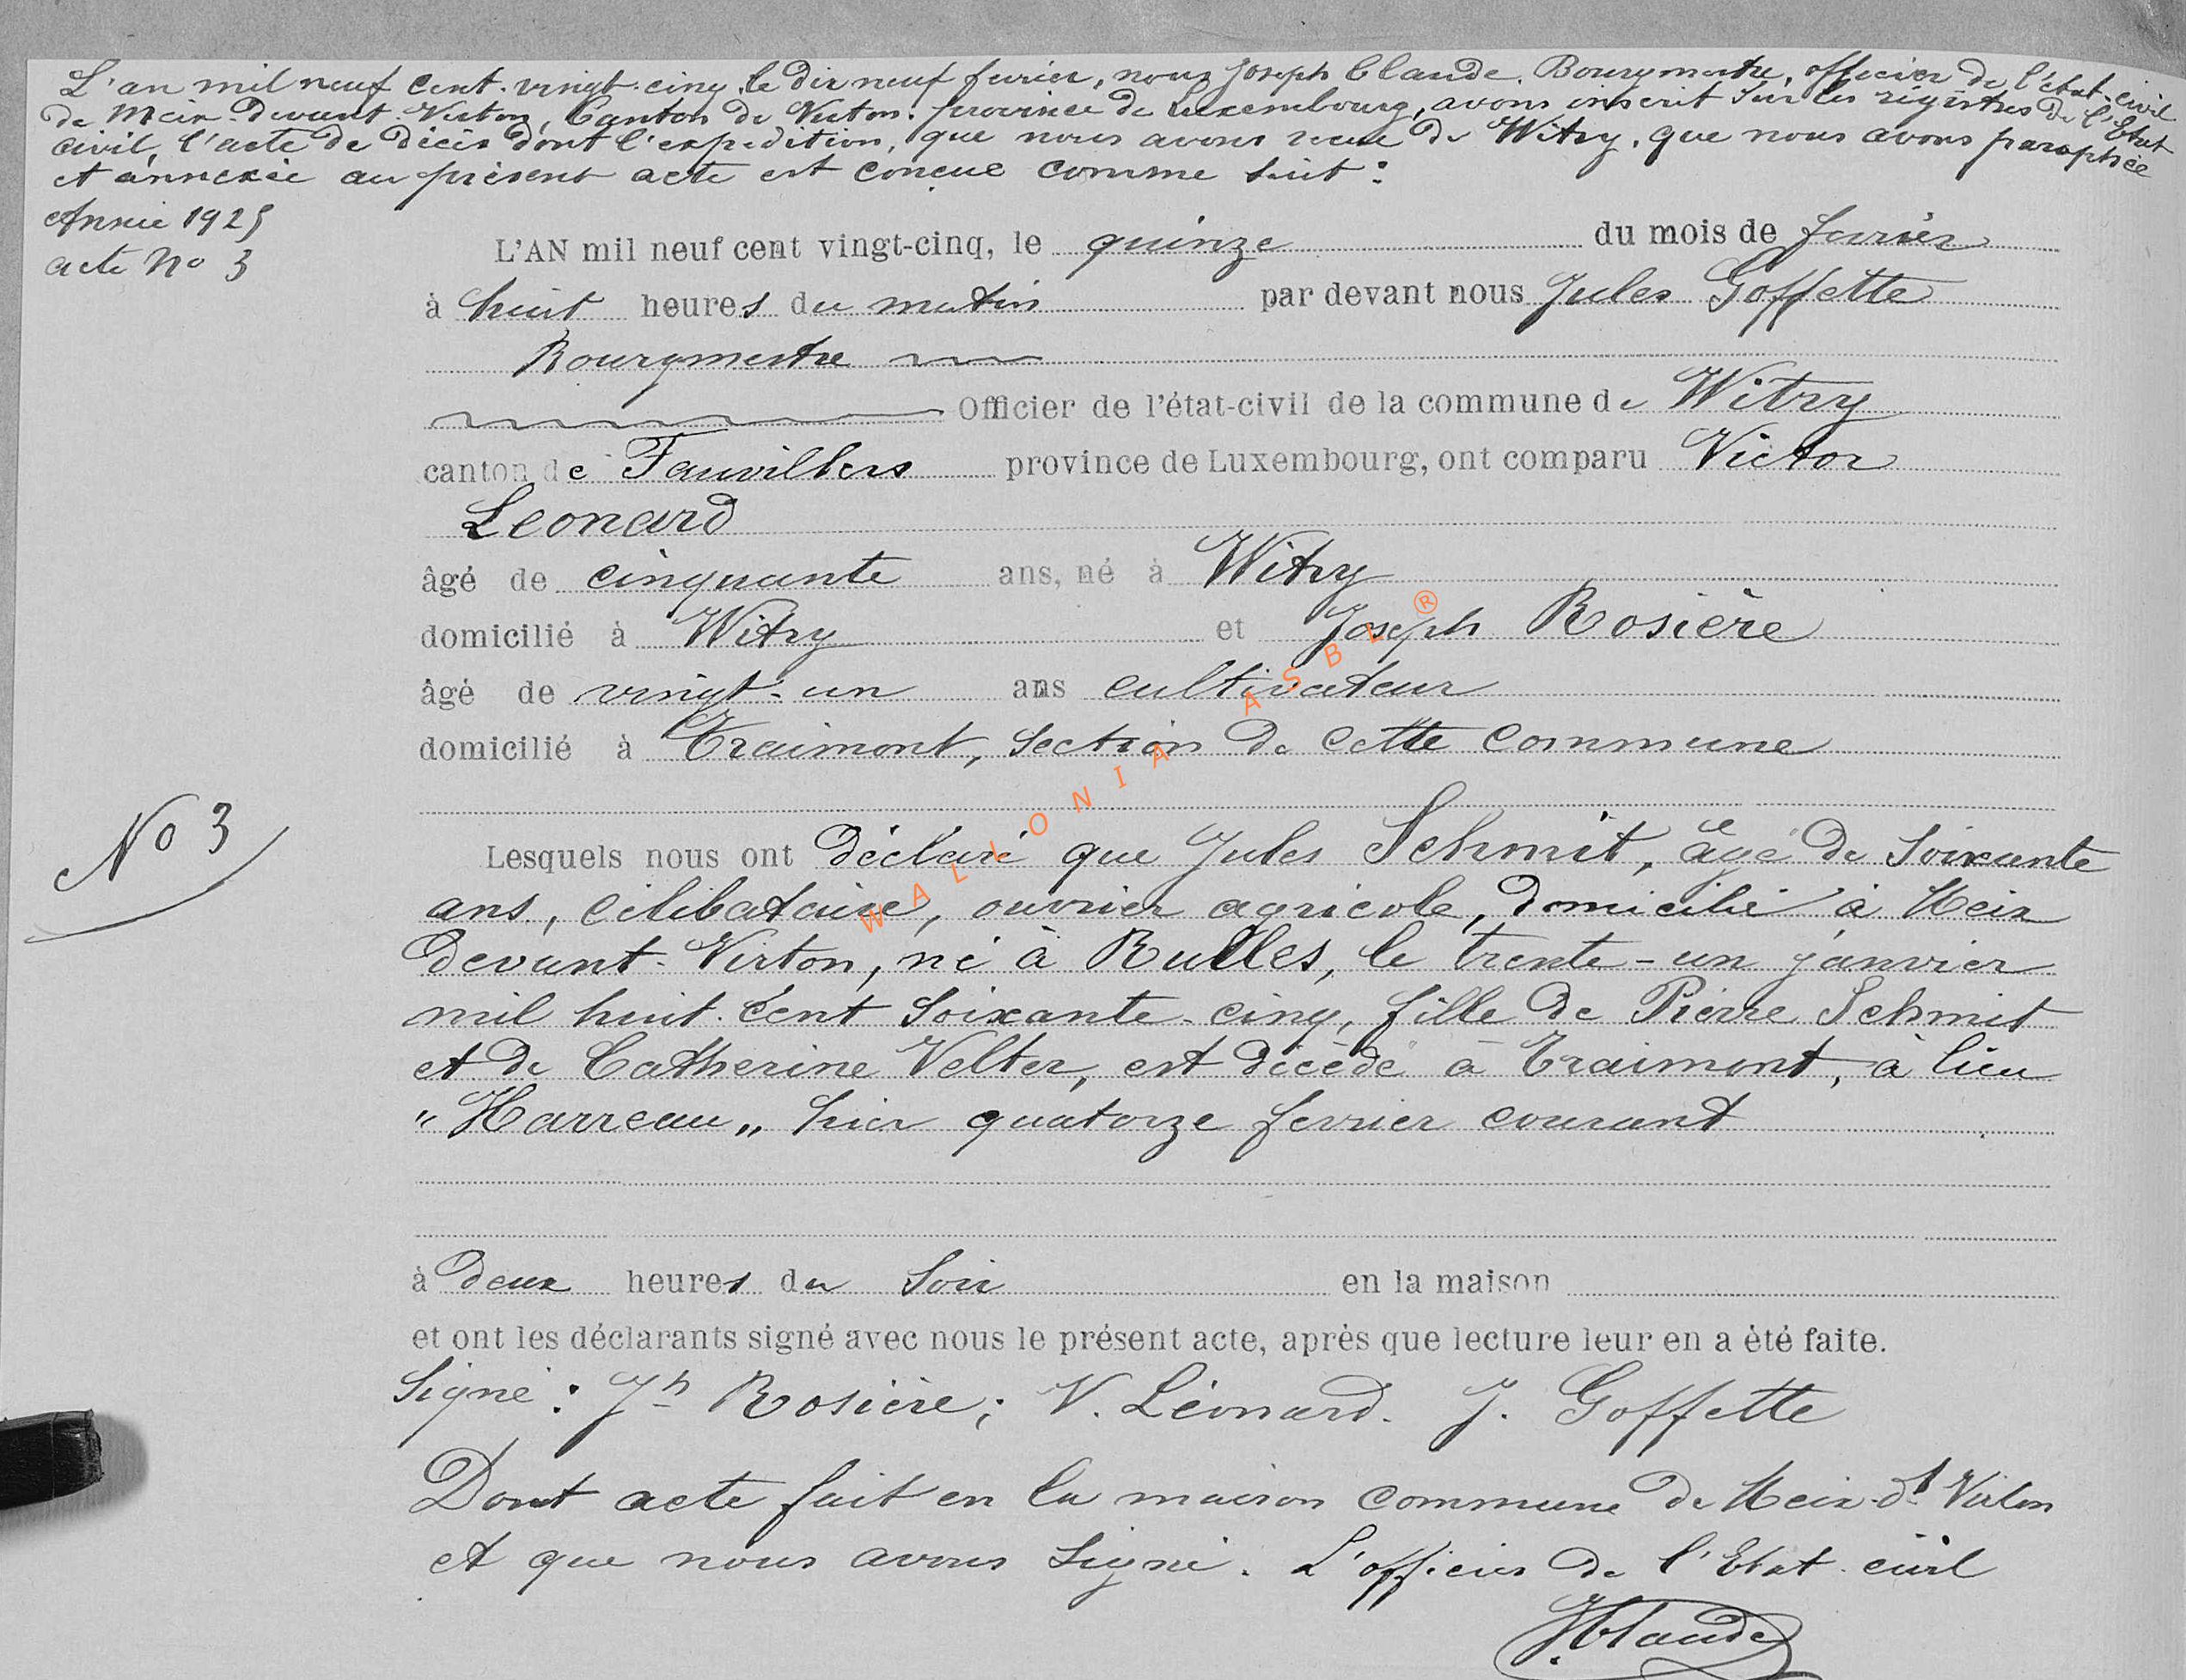 L'an mil neuf cent vingt-cinq, le dix neuf fevrier, nous Joseph Claude, Bourgmestre, officier de l'état-civil
de Meix-devant-Virton, Canton de Virton, province de Luxembourg, avons inscrit sur les régistres de l'Etat
civil, l'acte de décès dont l'expedition, que nous avons recue de Witry, que nous avons paraphée
et annexée au présent acte est concue comme suit :
Année 1925
acte No 3
L'AN mil neuf cent vingt-cinq, le quinze du mois de fevrier
à huit heures du matin par devant nous Jules Goffette
Bourgmestre
Officier de l'état-civil de la commune de Witry
canton de Fauvillers province de Luxembourg, ont comparu Victor
Leonard
âgé de cinquante ans, né à Witry
domicilié à Witry et Joseph Rosière
âgé de vingt-un ans cultivateur
domicilié à Traimont, section de cette commune
No 3
Lesquels nous ont déclaré que Jules Schmit, âgé de soixante
ans, célibataire, ouvrier agricole, domicilié à Meix
devant-Virton, né à Rulles, le trente-un janvier
mil huit-cent soixante-cinq, fille de Pierre Schmit
et de Catherine Velter, est décédé à Traimont, à lieu
"Harreau" hier quatorze fevrier courant
à deux heures du soir en la maison
et ont les déclarants signé avec nous le présent acte, après que lecture leur en a été faite.
Signé : Jh Rosière ; V. Léonard. J. Goffette
Dont acte fait en la maison commune de Meix-dt Virton
et que nous avons signé. L'officier de l'Etat-civil
JClaude
WALLONIA ASBL ®